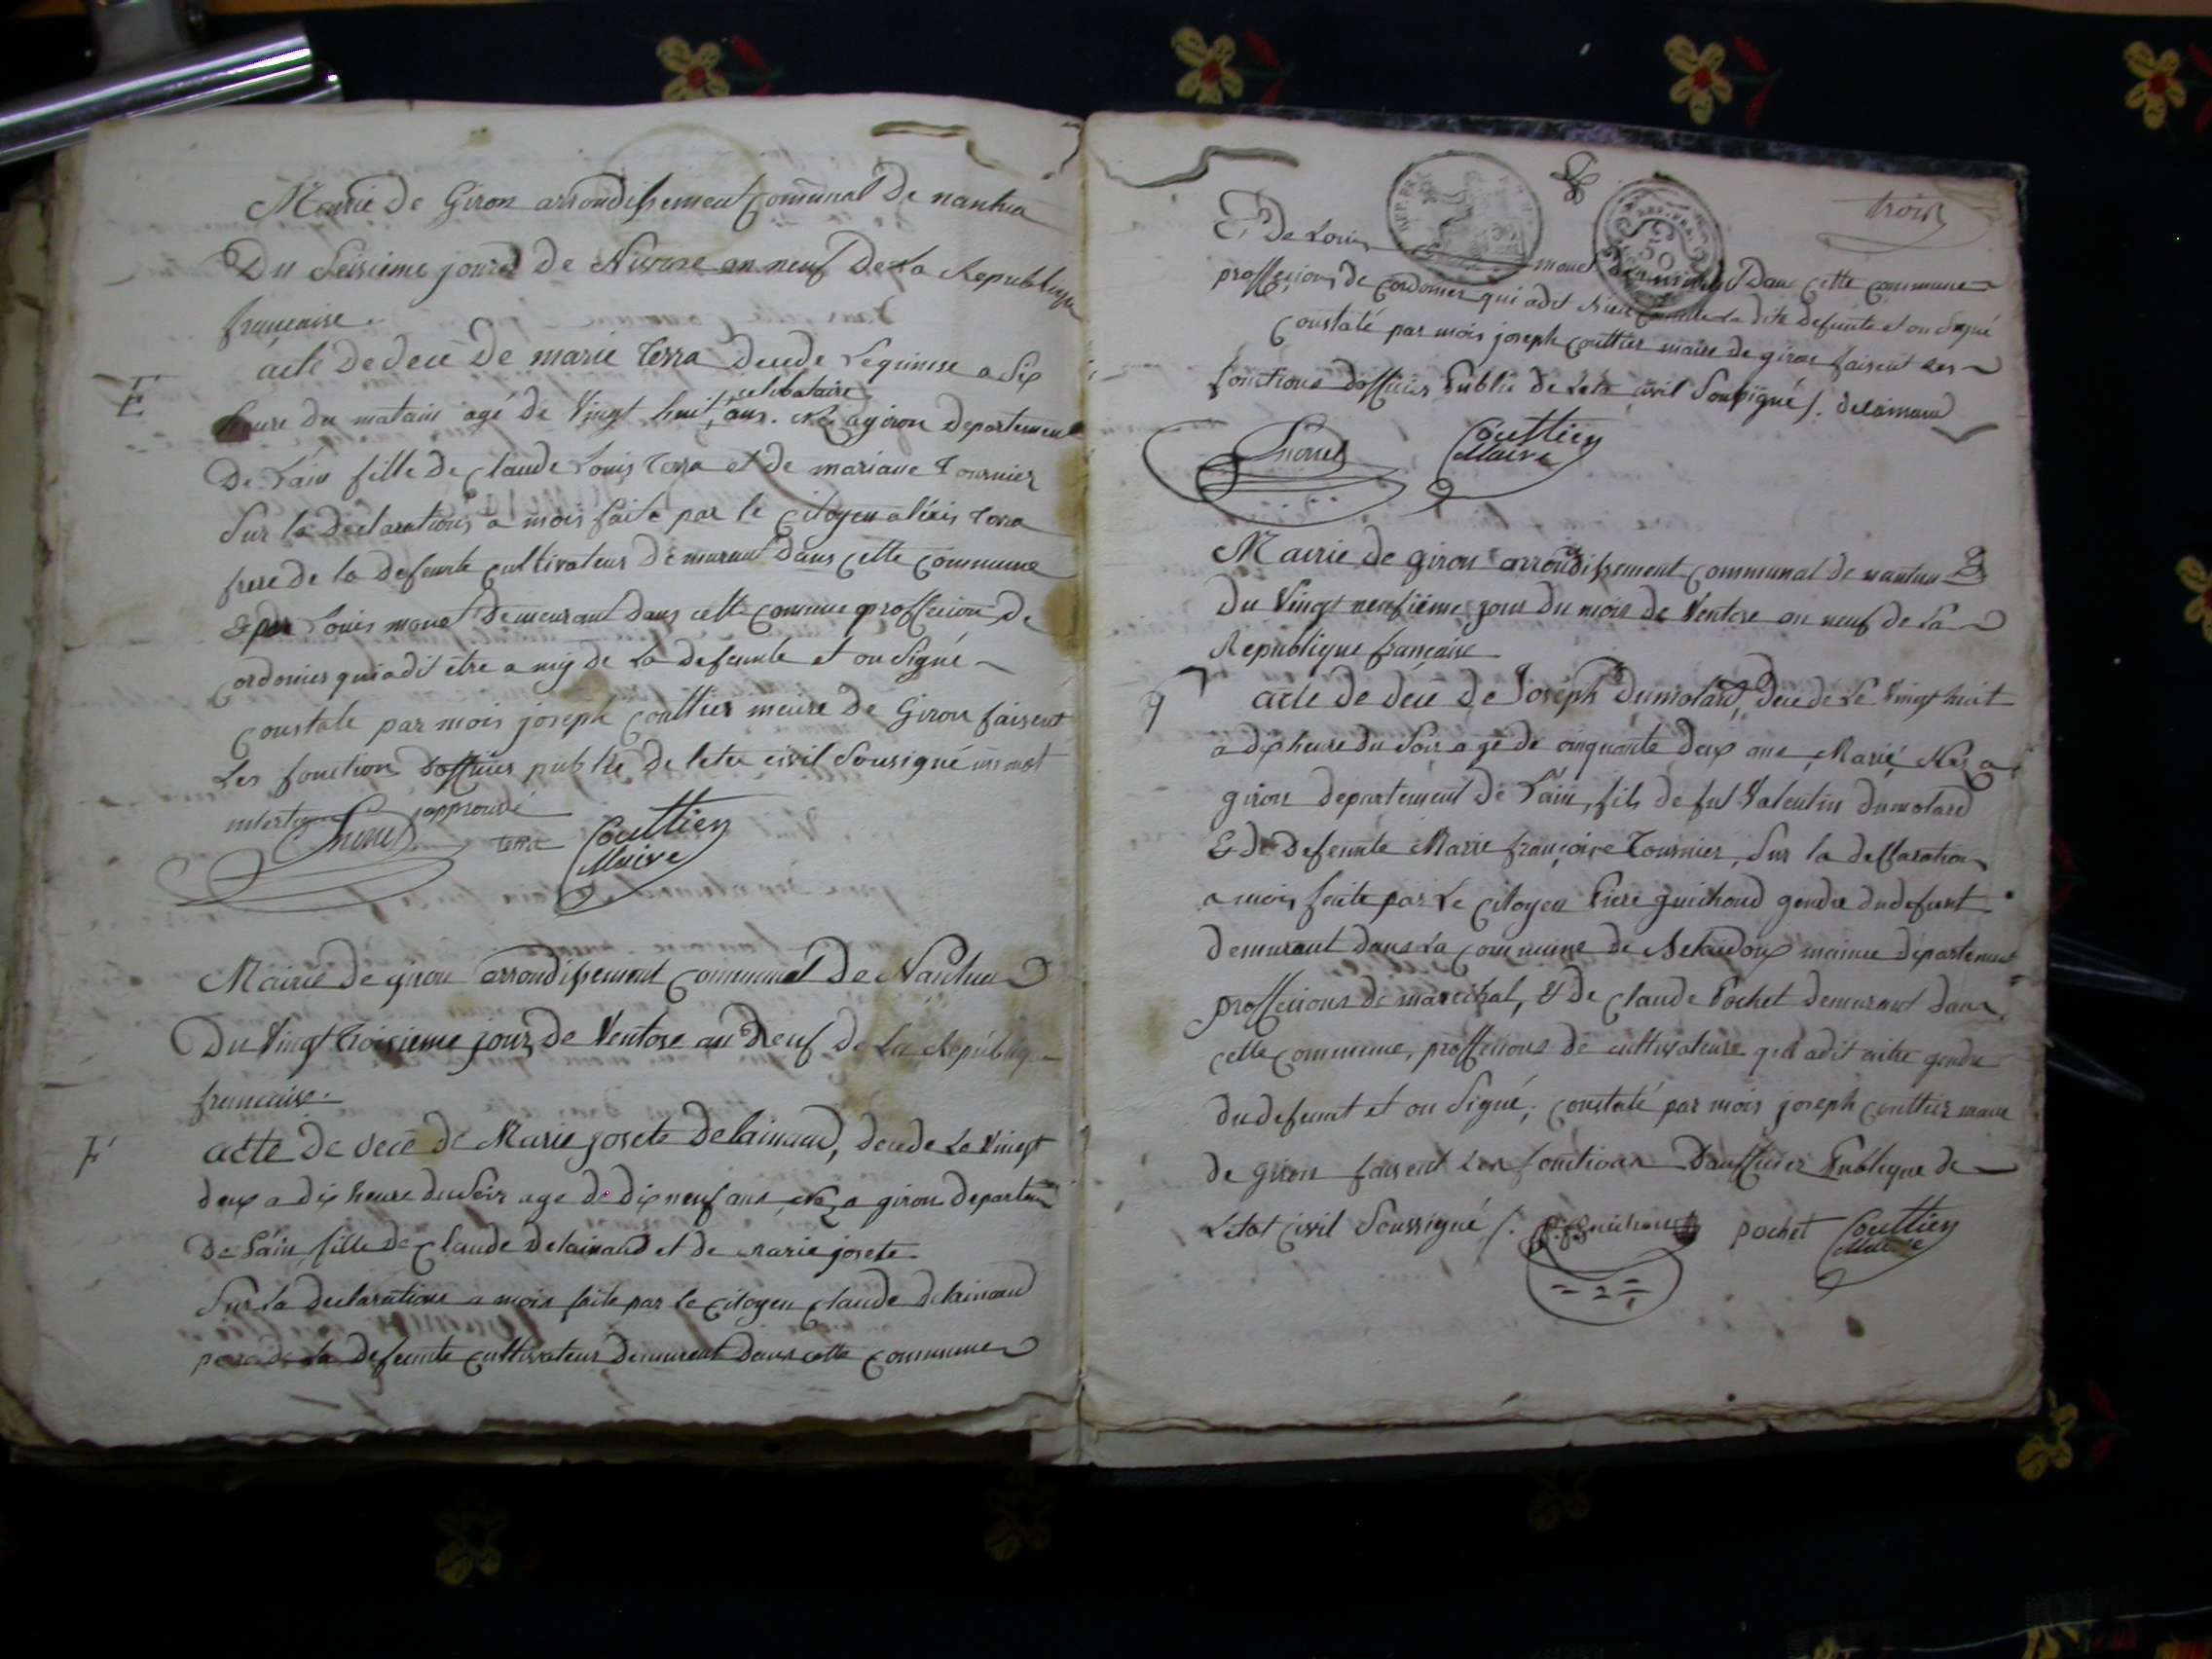 Mairie De Giron arrondissement Communal De nantua
Du Seisieme jour De Nivose an neuf De La Republique
francaise.
E
acte De decè De marie Terra decede Le quinse a dix
celibataire
heure du matain agé de Vingt huit ans. Née a giron departement
De Lain fille De Claude Louis Terra et de mariane Tournier
Sur la declarations a mois faite par le Citoyen aléxis Terra
frere de la defeunte Cultivateur Demurant Dans Cette Commune
& par Louis monet Demeurant Dans cette Commune proffecions De
Cordonier qui a dit être a mis de La defeunte et on Signé
Constate par mois joseph Couttier meire De Giron faisent
Les fonction Dofficier publié De letat civil Sousigné un mot
approuvé
monet Terra Couttier
Maire
Mairie De giron arrondissement Communal De Nantua
Du Vingt troisieme jour De Ventose an Neuf De La Republique
francaise.
F
acte De decè De Marie josete Delainaud, decede Le Vingt
deux a dix heure du Soir age De dix neuf ans, Née a giron departem
De Lain fille De Claude Delainaud et de marie josete
Sur La declarations a mois faite par le Citoyen Claude Delainaud
pere de la defeunte Cultivateur Demurent Dans cette Commune
trois
REP. FRA.
50
Et De Louis monet Demurant Dans Cette Commune
proffecions de Cordonier qui a dit La dite Defeunte et on Signé
Constaté par mois joseph Couttier maire de giron faisent Les
fonctions Dofficier Publié De Letat civil Soussigné /. delainaud
monet Couttier
Maire
Mairie de giron arrondissement Communal de nantua
Du Vingt neufième jour Du mois de Ventose an neuf de La
Republique francaise
g
acte de decè De Joseph Dumolard, decede Le Vingt huit
a dix heure du Soir agé de cinquante deux ans, Marié, Née a
giron departement de Lain, fils de fut Valentin Dumolard
& de Defeunte Marie françoise Tournier, Sur la declaration
a mois faite par Le Citoyen Piere guichond gendre du defunt
demurant dans La Commune de maime departement
proffecions de marechal, & de Claude Pochet demurant dans
Cette Commune, proffecions de cultivateure qui a dit gendre
du defeunt et on Signé; Constaté par mois joseph Couttier maire
de giron faisent Les fonctions Daufficier Publique de
Letat Civil Soussigné /. Pochet Couttier
Maire